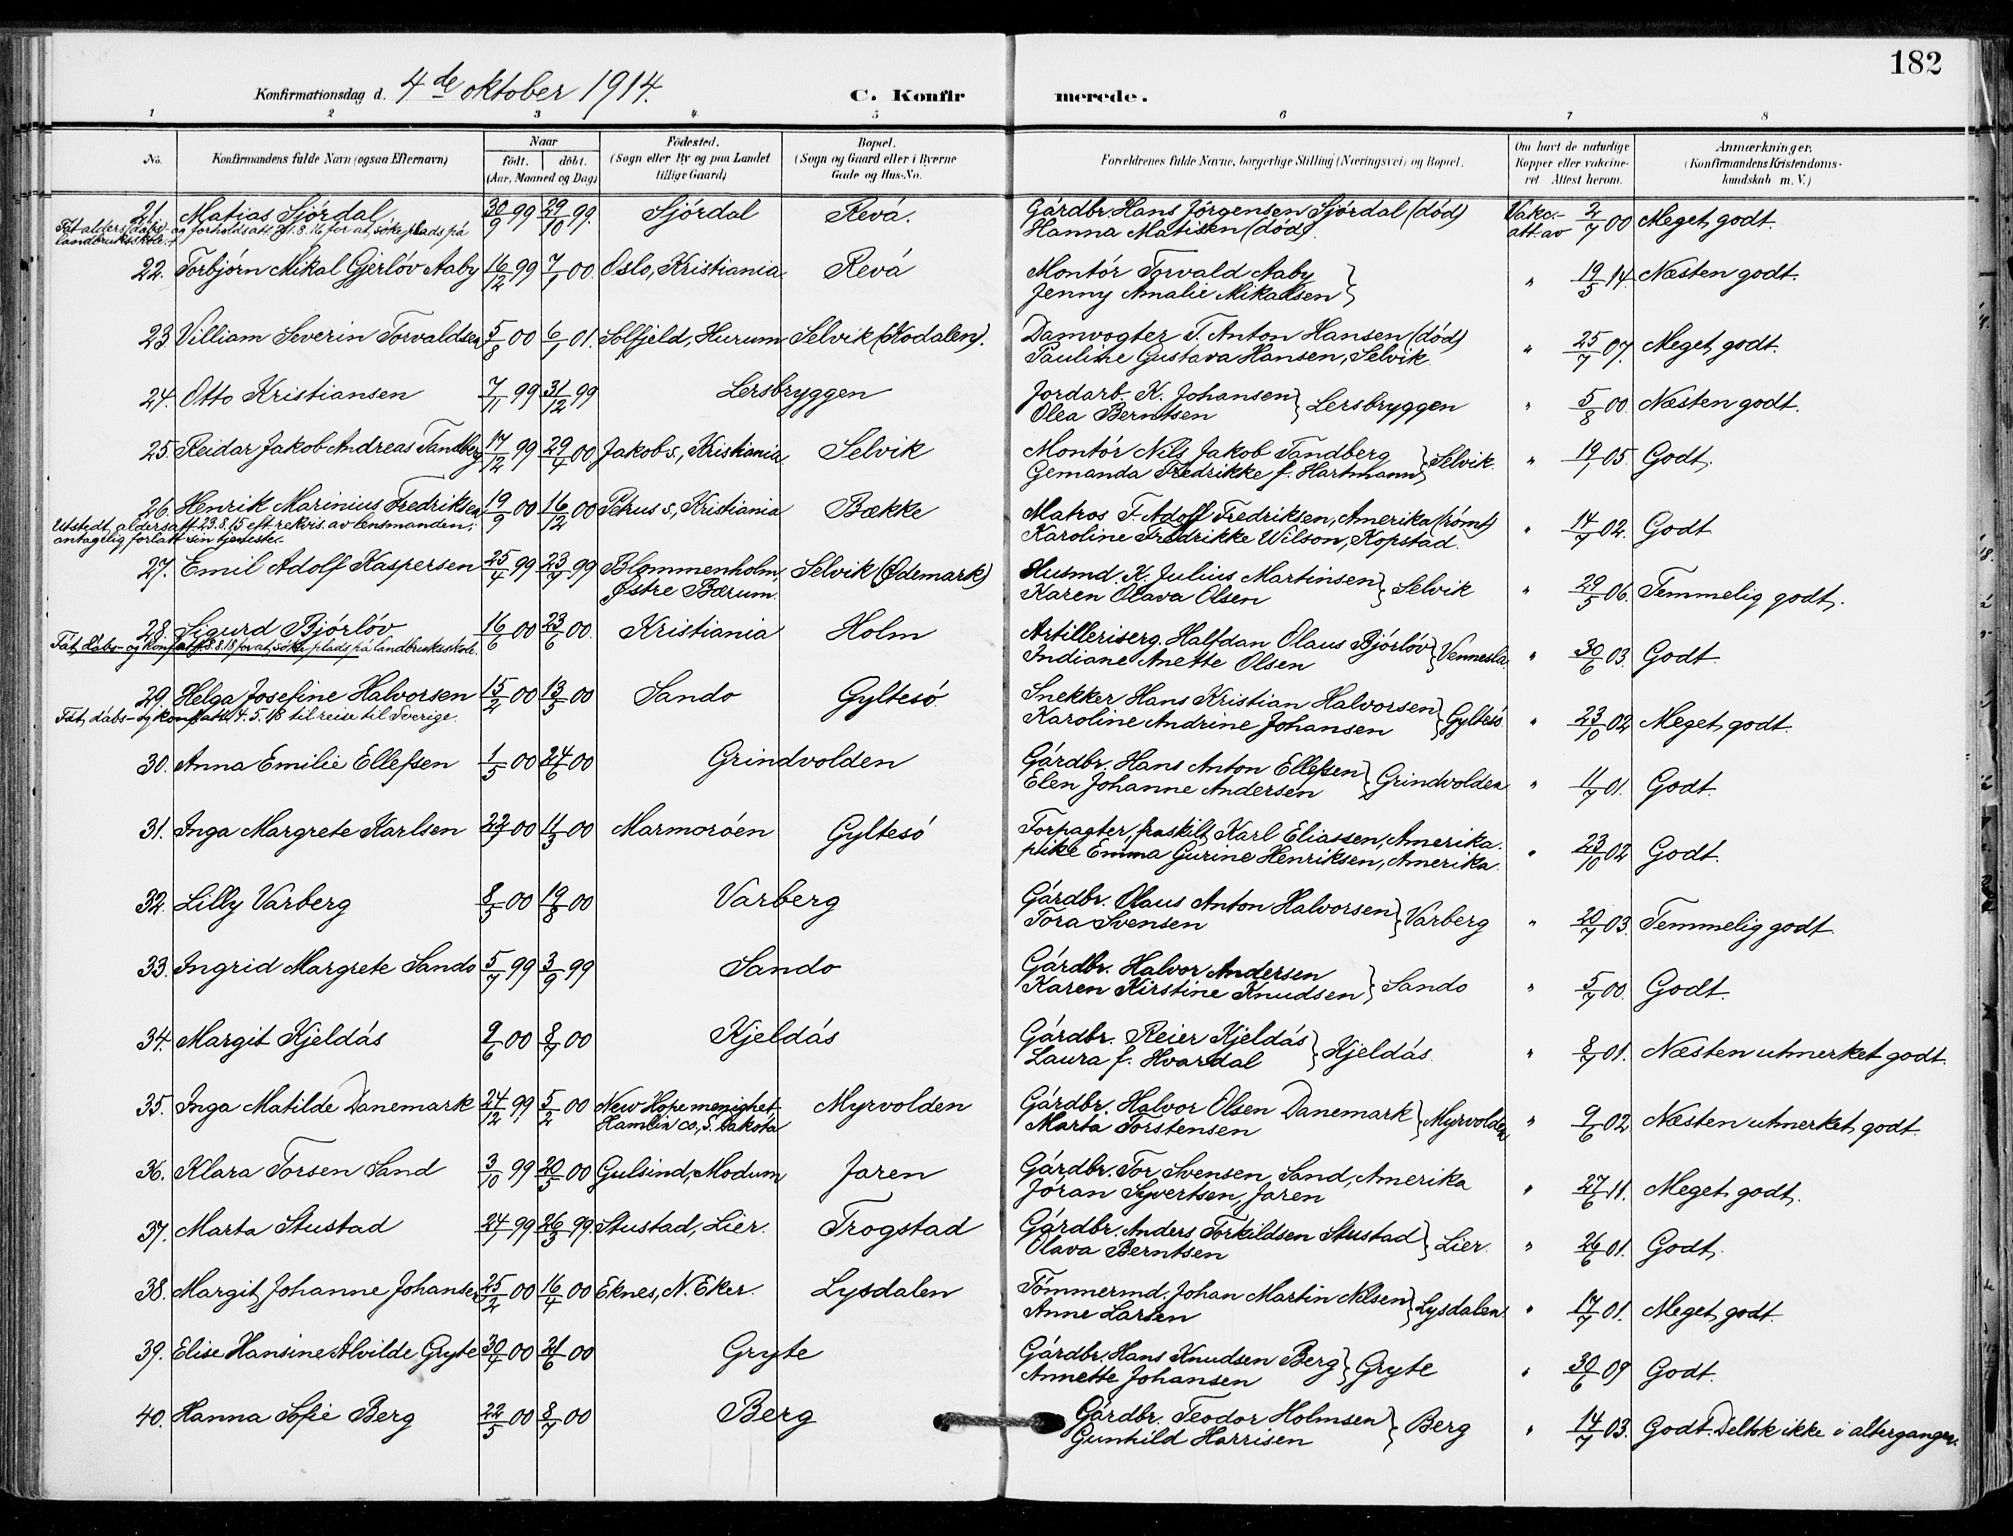 182
Konfirmationsdag d. 4de oktober 1914.
C. Konfirmerede.
1 2 3 4 5 6 7 8
No. Konfirmandens fulde Navn (ogsaa Efternavn) Naar født. døbt. (Aar, Maaned og Dag) Fødested. (Sogn eller By og paa Landet tillige Gaard) Bopæl. (Sogn og Gaard eller i Byerne Gade og Hus-No. Forældrenes fulde Navne, borgerlige Stilling (Næringsvei) og Bopæl. Om havt de naturlige Kopper eller vakcineret. Attest herom. Anmærkninger. (Konfirmandens Kristendomskundskab m. V.)
21. Matias Sjórdal 30/9 99 29/10 99. Sjórdal Revá. Gárdbr. Hans Jórgensen Sjórdal (dód) Vakc.- 2/7 00 Meget godt.
Hanna Matisen (dód). att. av
Fát alders (dábs)- og forholdsatt. 21.8.16 for at sóke plads pá
landbruksskole.
22. Torbjórn Mikal Gjerlóv Aaby 16/12 99 7/1 00. Oslo, Kristiania Revá Montór Torvald Aaby " 19/5 14. Næsten godt.
Jenny Amalie Mikalsen
23. Villiam Severin Torvaldsen 5/8 00 6/1 01. Solfjeld, Hurum Selvik (Kodalen). Damvogter T. Anton Hansen (dód) " 25/7 07. Meget godt.
Pauline Gustava Hansen, Selvik.
24. Otto Kristiansen 7/11 99 31/12 99 Lersbryggen Jordarb. K. Johansen } Lersbryggen " 5/8 00 Næsten godt.
Olea Berntsen
25. Reidar Jakob Andreas Tandberg 17/12 99 29/4 00 Jakobs, Kristiania Selvik Montór Nils Jakob Tandberg } Selvik. " 19/1 05. Godt.
Gemanda Fredrikke f. Hartmann
26. Henrik Marinius Fredriksen 19/9 00 16/12 00 Petrus s., Kristiania Bække Matros F. Adolf Fredriksen, Amerika (rómt) " 14/7 02. Godt
Karoline Fredrikke Wilson, Kopstad.
Utstedt aldersatt. 23.8.15 eft. rekvis. av lensmanden;
antagelig forlatt sin tjeneste.
27. Emil Adolf Kaspersen 25/4 99 23/7 99 Blommenholm, Selvik (Ødemark) Husmd. K. Julius Martinsen } Selvik " 29/5 06. Temmelig godt.
Østre Bærum. Karen Olava Olsen
28. Sigurd Bjórlóv 16/6 00 23/6 00. Kristiania Holm Artilleriserg. Halfdan Olaus Bjórlóv } Vennesla " 30/6 03. Godt
Indiane Anette Olsen
Fát dábs- og konf. att. 8.8.18 for at sóke plads pá landbruksskole.
29. Helga Josefine Halvorsen 15/2 00 13/5 00 Sando Gyltesó. Snekker Hans Kristian Halvorsen } Gyltesó " 23/10 02 Meget godt.
Karoline Andrine Johansen
Fát dábs- og konf. att. 14.5.18 til reise til Sverige.
30. Anna Emilie Ellefsen 1/5 00 24/6 00 Grindvolden Gárdbr. Hans Anton Ellefsen } Grindvolden " 11/7 01. Godt.
Elen Johanne Andersen
31. Inga Margrete Karlsen 22/1 00 11/3 00 Marmoróen Gyltesó Forpagter, fraskilt Karl Eliassen, Amerika. " 23/10 02 Godt.
pike Emma Gurine Henriksen, Amerika.
32. Lilly Varberg 8/5 00 19/8 00 Varberg Gárdbr. Olaus Anton Halvorsen } Varberg " 20/7 03. Temmelig godt
Tora Svensen
33. Ingrid Margrete Sando 5/7 99 3/9 99 Sando Gárdbr. Halvor Andersen } Sando " 5/7 00. Godt.
Karen Kirstine Knudsen
34. Margit Kjeldás 9/6 00 8/7 00 Kjeldás Gárdbr. Reier Kjeldás } Kjeldás. " 8/7 01. Næsten utmerket godt.
Laura f. Hvardal
35. Inga Matilde Danemark 24/12 99 5/2 00 New Hope menighet Myrvolden Gárdbr. Halvor Olsen Danemark } Myrvolden " 9/6 02 Næsten utmerket godt.
Hamlin co., S. Dakota Marta Torstensen
36. Klara Torsen Sand 3/10 99 20/5 00 Gulsind, Modum Jaren Gárdbr. Tor Svensen Sand, Amerika " 27/6 11. Meget godt.
Jóran Syvertsen, Jaren
37. Marta Stustad 24/1 99 26/3 99. Stustad, Lier. Trogstad Gárdbr. Anders Torkildsen Stustad } Lier. " 26/6 01. Godt.
Olava Berntsen
38. Margit Johanne Johansen 25/2 00 16/4 00 Eknes, N. Eker. Lysdalen Tómmermd. Johan Martin Nilsen } Lysdalen. " 17/7 01. Meget godt.
Anne Larsen
39. Elise Hansine Alvilde Gryte 30/4 00 21/6 00 Gryte Gárdbr. Hans Knudsen Berg } Gryte " 30/6 09 Godt.
Annette Johansen
40. Hanna Sofie Berg 22/5 00 8/7 00 Berg Gárdbr. Teodor Holmsen } Berg " 14/7 03. Godt. Deltok ikke i altergangen.
Gunhild Harrisen